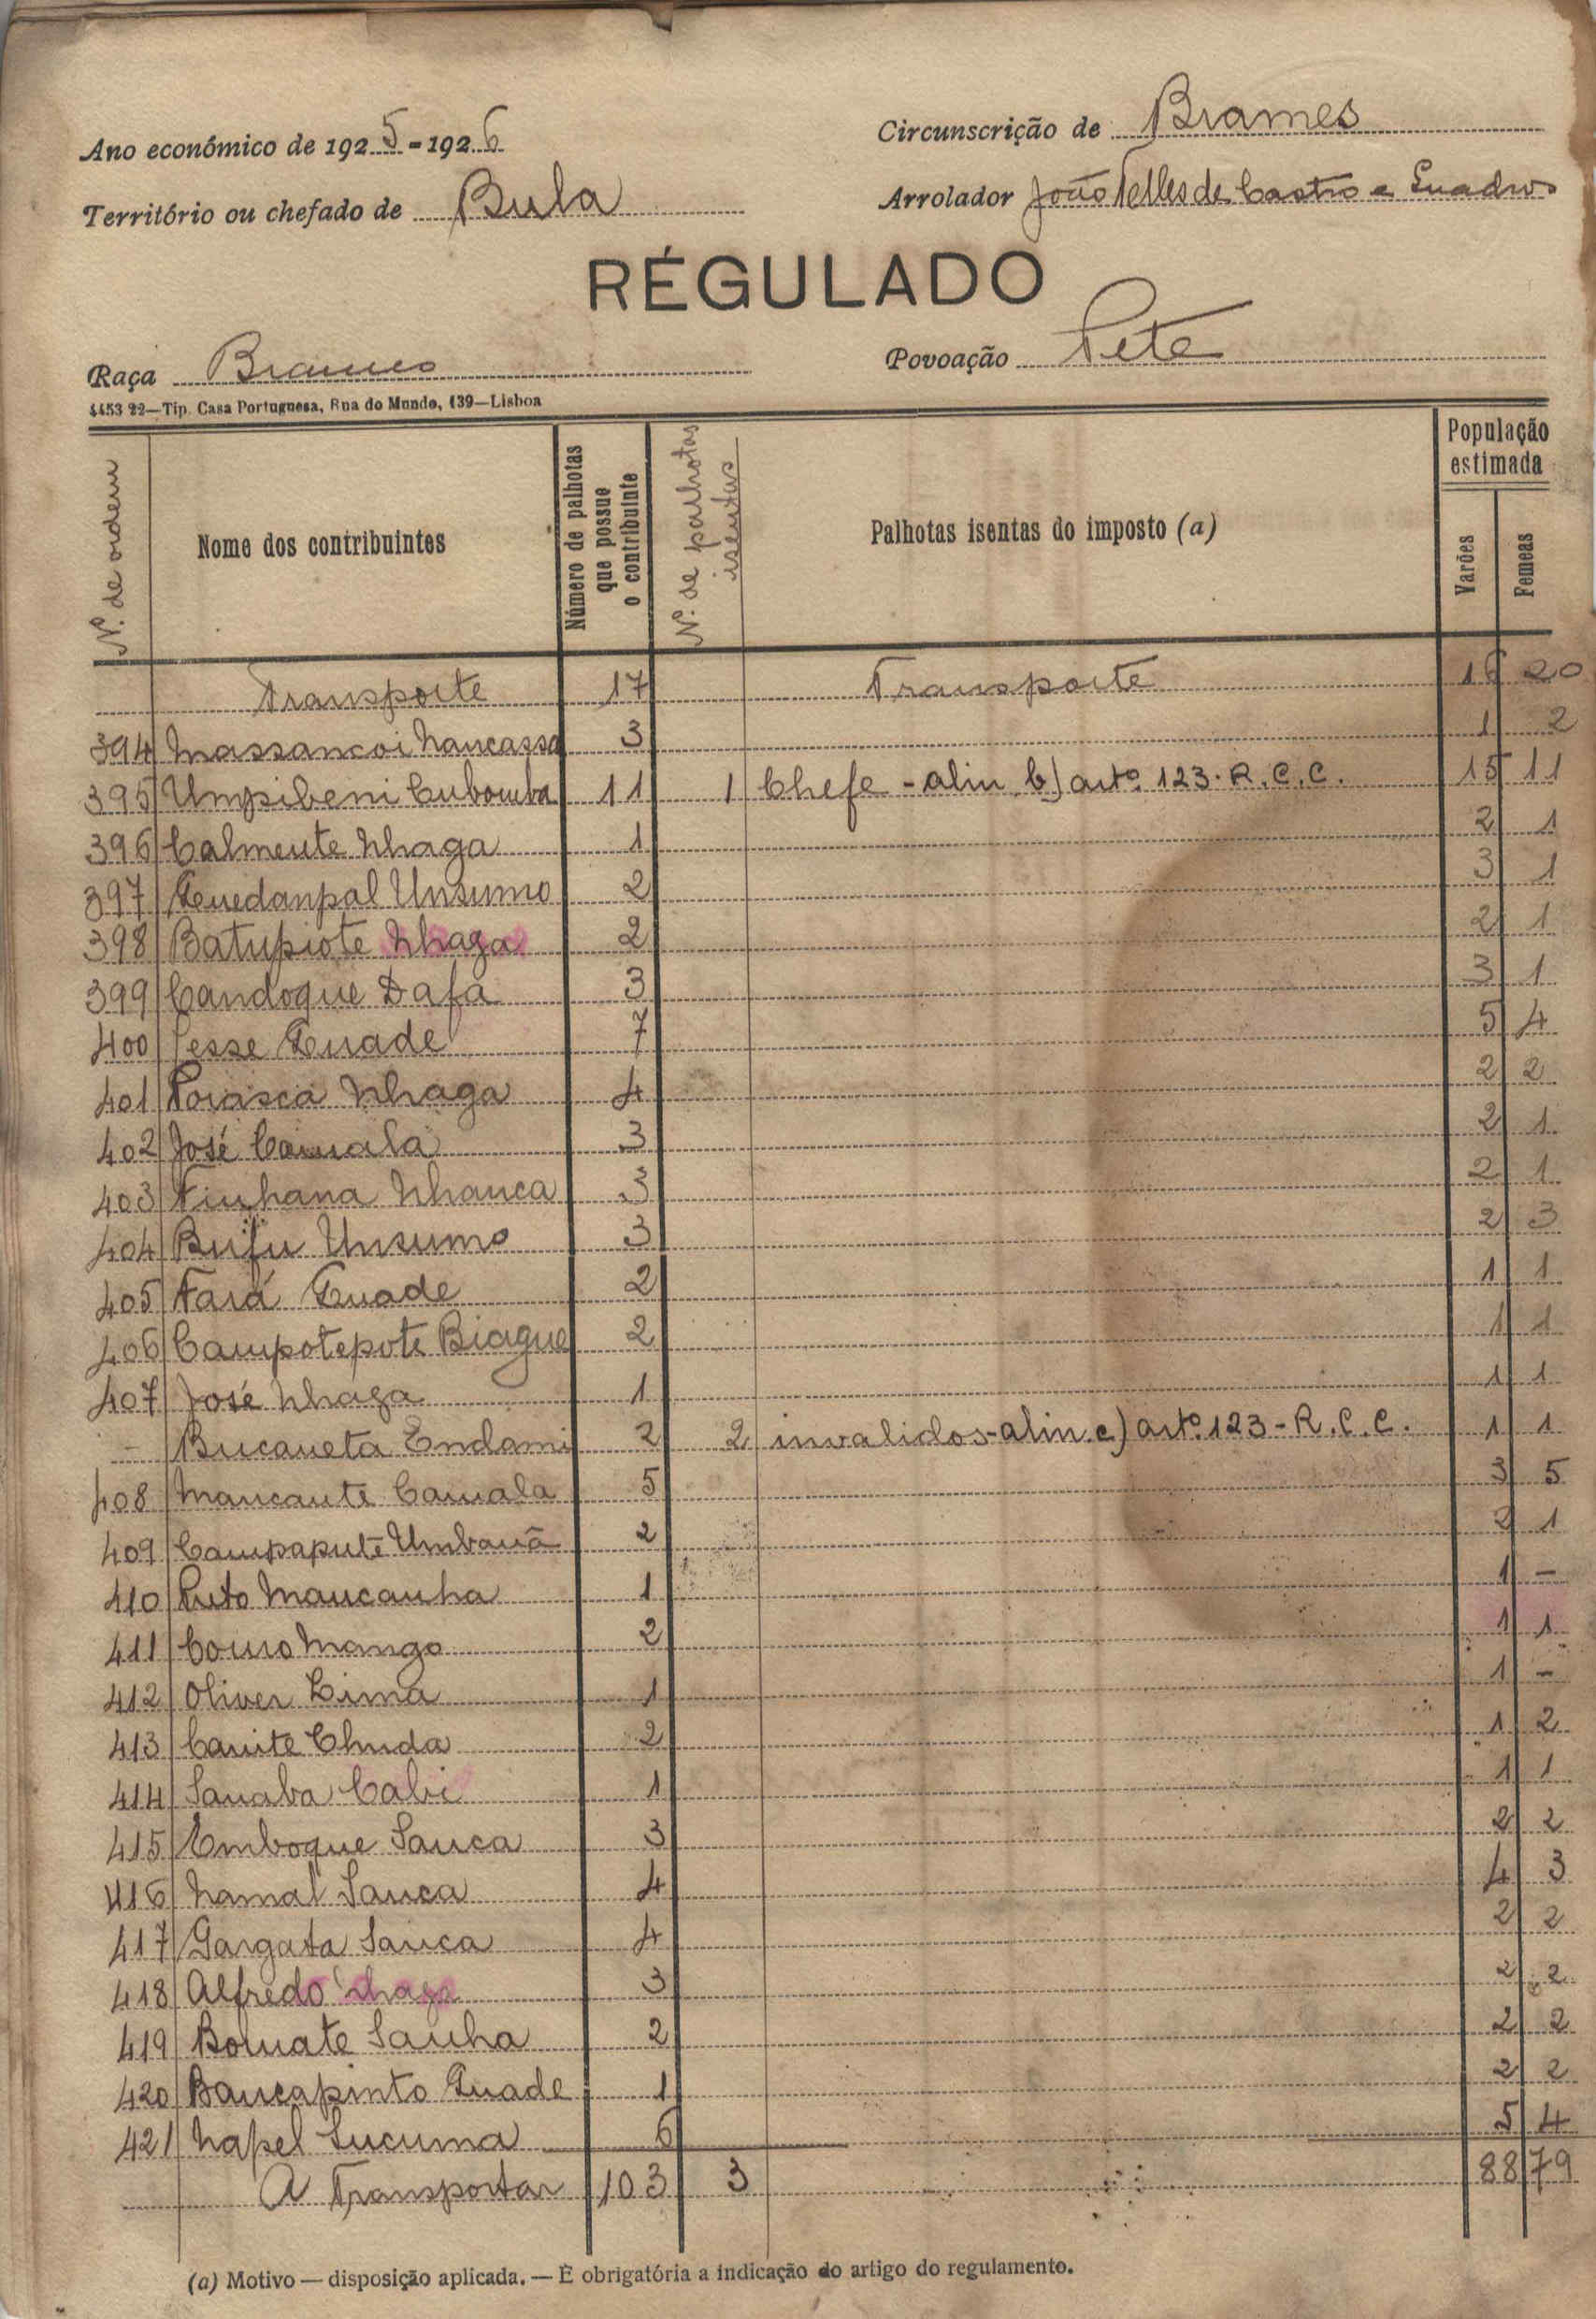 Ano económico de 1925-1926
Circunscrição de Brames
Território ou chefado de Bula
Arrolador João Telles de Castro e Quadros
RÉGULADO
Raça Brames
Povoação Pete
4453 22—Tip. Casa Portuguesa, Rua do Mundo, 139—Lisboa
Nº. de ordem
Nome dos contribuintes
Número de palhotas que possue o contribuinte
Nº. de palhotas isentas
Palhotas isentas do imposto (a)
População estimada
Varões
Femeas
Transporte 17 Transporte 16 20
394 Massancoi Nancassa 3 1 2
395 Umpibeni Cubomba 11 1 Chefe - alin b) artº. 123. R.C.C. 15 11
396 Calmente Nhaga 1 2 1
397 Unsumo 2 3 1
398 Batupiote Nhaga 2 2 1
399 Candoque Dafá 3 3 1
400 Sesse Quade 7 5 4
401 Nhaga 4 2 2
402 José Camala 3 2 1
403 Nhanca 3 2 1
404 Bufu Unsumo 3 2 3
405 Fará Quade 2 1 1
406 Campotepote Biague 2 1 1
407 José Nhaga 1 1 1
- Bucaneta Endami 2 2 invalidos - alin. c) artº. 123 - R.C.C. 1 1
408 Mancante Camala 5 3 5
409 Campapute 2 2 1
410 Preto Mancanha 1 1 -
411 Mango 2 1 1
412 Oliver Lima 1 1 -
413 Chuda 2 1 2
414 Sanaba Cabi 1 1 1
415 Emboque Sanca 3 2 2
416 Namal Sanca 4 4 3
417 Gargata Sanca 4 2 2
418 Alfredo Nhaga 3 2 2
419 Sanha 2 2 2
420 Bancapinto Quade 1 2 2
421 Napel Sucuma 6 5 4
A Transportar 103 3 88 79
(a) Motivo — disposição aplicada. — É obrigatória a indicação do artigo do regulamento.